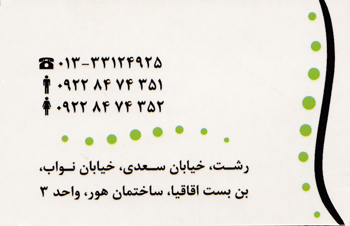 ۰۱۳-۳۳۱۲۴۹۲۵
۰۹۲۲ ۸۴ ۷۴ ۳۵۱
۰۹۲۲ ۸۴ ۷۴ ۳۵۲
رشت، خیابان سعدی، خیابان نواب،
بن بست اقاقیا، ساختمان هور، واحد ۳